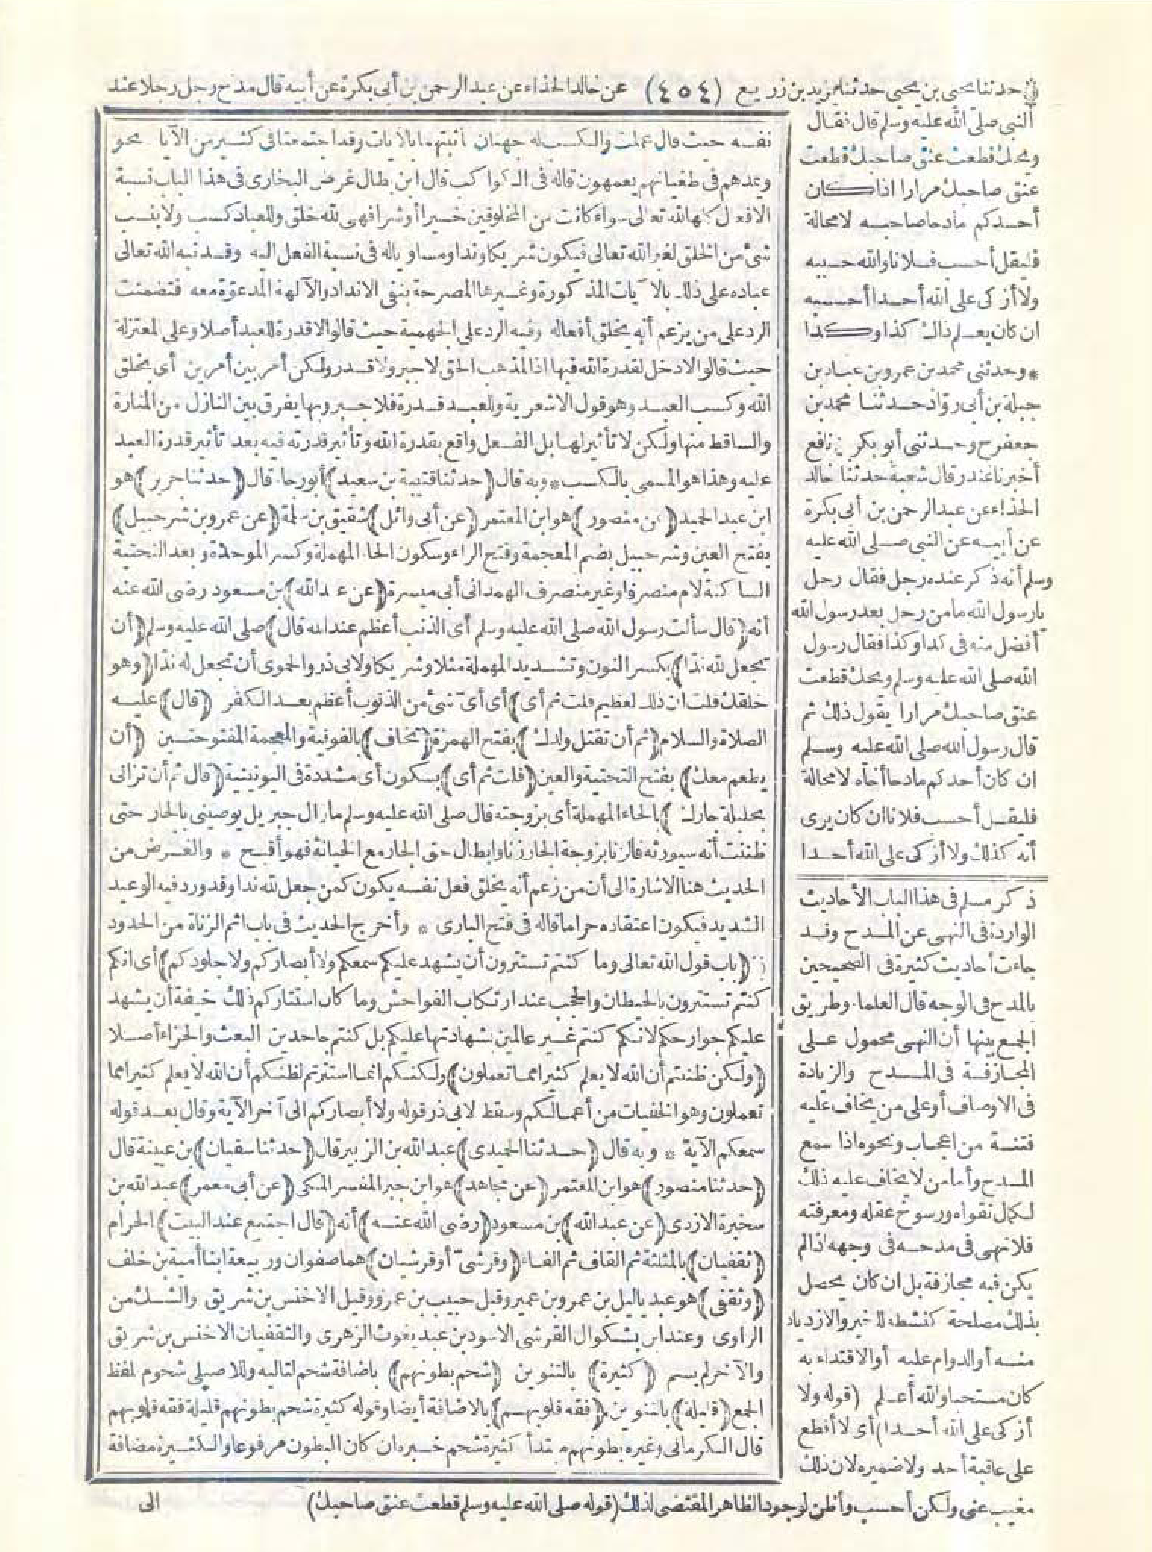 حدثنا يحيى بن يحيى حدثنا يزيد بن زريع (٤٥٤) عن خالد الحذاء عن عبد الرحمن بن أبي بكرة عن أبيه قال مدح رجل رجلا عند
النبي صلى الله عليه وسلم قال فقال
ويحك قطعت عنق صاحبك قطعت
عنق صاحبك مرارا اذا كان
أحدكم مادحا صاحبه لا محالة
فليقل أحسب فلانا والله حسيبه
ولا أزكى على الله أحدا أحسبه
ان كان يعلم ذاك كذا وكذا
* وحدثني محمد بن عمرو بن عباد بن
جبلة بن أبي رواد حدثنا محمد بن
جعفر ح وحدثني أبو بكر بن نافع
أخبرنا غندر قال شعبة حدثنا خالد
الحذاء عن عبد الرحمن بن أبي بكرة
عن أبيه عن النبي صلى الله عليه
وسلم أنه ذكر عنده رجل فقال رجل
يا رسول الله ما من رجل بعد رسول الله
أفضل منه في كذا وكذا فقال رسول
الله صلى الله عليه وسلم ويحك قطعت
عنق صاحبك مرارا يقول ذلك ثم
قال رسول الله صلى الله عليه وسلم
ان كان أحدكم مادحا أخاه لا محالة
فليقل أحسب فلانا ان كان يرى
أنه كذلك ولا أزكى على الله أحدا
ذكر مسلم في هذا الباب الأحاديث
الواردة في النهى عن المدح وقد
جاءت أحاديث كثيرة في الصحيحين
بالمدح في الوجه قال العلماء وطريق
الجمع بينها أن النهى محمول على
المجازفة في المدح والزيادة
في الاوصاف أو على من يخاف عليه
فتنة من اعجاب ونحوه اذا سمع
المدح وأما من لا يخاف عليه ذلك
لكمال تقواه ورسوخ عقله ومعرفته
فلا نهى في مدحه في وجهه اذا لم
يكن فيه مجازفة بل ان كان يحصل
بذلك مصلحة كنشطه للخير والازدياد
منه أو الدوام عليه أو الاقتداء به
كان مستحبا والله أعلم (قوله ولا
أزكى على الله أحدا) أي لا أقطع
على عاقبة أحد ولا ضميره لان ذلك
مغيب عنى ولكن أحسب وأظن لوجود الظاهر المقتضى لذلك (قوله صلى الله عليه وسلم قطعت عنق صاحبك)
نفسه حيث قال عملت والكسب له جهتان أثبتهما بالآيات وقد اجتمعتا في كثير من الآيا نحو
ويمدهم في طغيانهم يعمهون قاله في الكواكب قال ابن بطال غرض البخارى في هذا الباب نسبة
الافعال كلها لله تعالى سواء كانت من المخلوقين خيرا أو شرا فهى لله خلق وللعباد كسب ولا ينسب
شئ من الخلق لغير الله تعالى فيكون شريكا وندا ومساويا له في نسبة الفعل اليه وقد نبه الله تعالى
عباده على ذلك بالآيات المذكورة وغيرها المصرحة بنفى الانداد والآلهة المدعوة معه فتضمنت
الرد على من يزعم أنه يخلق أفعاله وفيه الرد على الجهمية حيث قالوا لا قدرة للعبد أصلا وعلى المعتزلة
حيث قالوا لا دخل لقدرة الله فيها اذ المذهب الحق لا جبر ولا قدر ولكن أمر بين أمرين أي بخلق
الله وكسب العبد وهو قول الاشعرية وللعبد قدرة فلا جبر وبها يفرق بين النازل من المنارة
والساقط منها ولكن لا تأثير لها بل الفعل واقع بقدرة الله وتأثير قدرته فيه بعد تأثير قدرة العبد
عليه وهذا هو المسمى بالكسب * وبه قال (حدثنا قتيبة بن سعيد) أبو رجاء قال (حدثنا جرير) هو
ابن عبد الحميد (عن منصور) هو ابن المعتمر (عن أبي وائل) شقيق بن سلمة (عن عمرو بن شرحبيل)
بفتح العين وشرحبيل بضم المعجمة وفتح الراء وسكون الحاء المهملة وكسر الموحدة وبعد التحتية
الساكنة لام منصرفا وغير منصرف الهمدانى أبى ميسرة (عن عبد الله) بن مسعود رضى الله عنه
أنه (قال سألت رسول الله صلى الله عليه وسلم أى الذنب أعظم عند الله قال) صلى الله عليه وسلم (أن
تجعل لله ندا) بكسر النون وتشديد المهملة مثلا وشريكا ولابى ذر والحموى أن تجعل له ندا (وهو
خلقك قلت ان ذلك لعظيم قلت ثم أى) أى أى شئ من الذنوب أعظم بعد الكفر (قال) عليه
الصلاة والسلام (ثم أن تقتل ولدك) بفتح الهمزة (تخاف) بالفوقية والمعجمة المفتوحتين (أن
يطعم معك) بفتح التحتية والعين (قلت ثم أى) بسكون أى مشددة في اليونينية (قال ثم أن تزانى
بحليلة جارك) بالحاء المهملة أى بزوجته قال صلى الله عليه وسلم ما زال جبريل يوصينى بالجار حتى
ظننت أنه سيورثه فالزنا بزوجة الجار زنا وابطال حق الجار مع الخيانة فهو أقبح * والغرض من
الحديث هنا الاشارة الى أن من زعم أنه يخلق فعل نفسه يكون كمن جعل لله ندا وقد ورد فيه الوعيد
الشديد فيكون اعتقاده حراما قاله في فتح البارى * وأخرج الحديث في باب اثم الزناة من الحدود
(باب قول الله تعالى وما كنتم تستترون أن يشهد عليكم سمعكم ولا أبصاركم ولا جلودكم) أى انكم
كنتم تستترون بالحيطان والحجب عند ارتكاب الفواحش وما كان استتاركم ذلك خيفة أن يشهد
عليكم جوارحكم لانكم كنتم غير عالمين بشهادتها عليكم بل كنتم جاحدين البعث والجزاء أصلا
(ولكن ظننتم أن الله لا يعلم كثيرا مما تعملون) ولكنكم انما استترتم لظنكم أن الله لا يعلم كثيرا مما
تعملون وهو الخفيات من أعمالكم وسقط لابى ذر قوله ولا أبصاركم الى آخر الآية وقال بعد قوله
سمعكم الآية * وبه قال (حدثنا الحميدى) عبد الله بن الزبير قال (حدثنا سفيان) بن عيينة قال
(حدثنا منصور) هو ابن المعتمر (عن مجاهد) هو ابن جبر المفسر المكى (عن أبى معمر) عبد الله بن
سخبرة الازدى (عن عبد الله) بن مسعود (رضى الله عنه) أنه (قال اجتمع عند البيت) الحرام
(ثقفيان) بالمثلثة ثم القاف ثم الفاء (وقرشى أو قرشيان) هما صفوان وربيعة ابنا أمية بن خلف
(وثقفى) هو عبد ياليل بن عمرو بن عمير وقيل حبيب بن عمرو وقيل الاخنس بن شريق والشك من
الراوى وعند ابن بشكوال القرشى الاسود بن عبد يغوث الزهرى والثقفيان الاخنس بن شريق
والآخر لم يسم (كثيرة) بالتنوين (شحم بطونهم) باضافة شحم لتاليه وللاصيلى شحوم بلفظ
الجمع (قليلة) بالتنوين (فقه قلوبهم) بالاضافة أيضا وقوله كثيرة شحم بطونهم قليلة فقه قلوبهم
قال الكرمانى وغيره بطونهم مبتدأ كثيرة شحم خبره ان كان البطون مرفوعا والكثيرة مضافة
الى